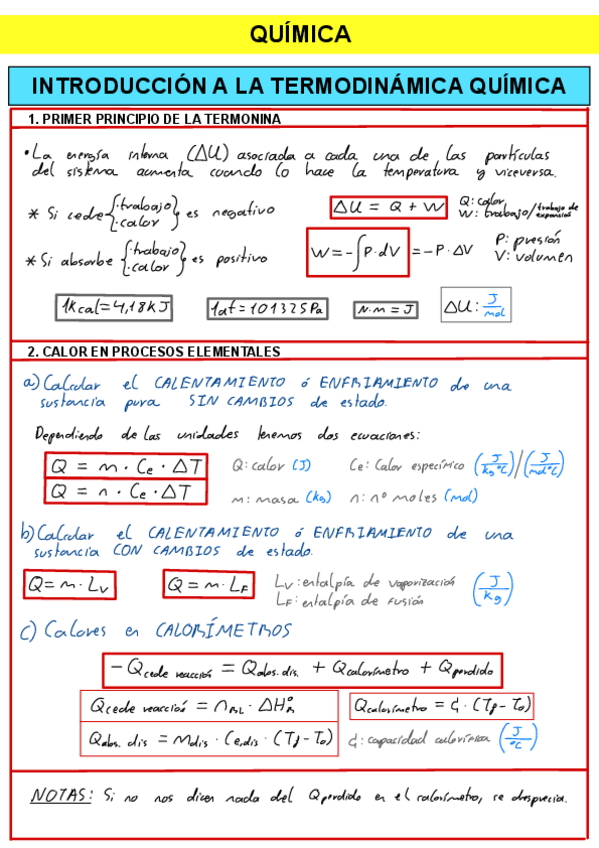 QUÍMICA
INTRODUCCIÓN A LA TERMODINÁMICA QUÍMICA
1. PRIMER PRINCIPIO DE LA TERMONINA
• La energía interna (ΔU) asociada a cada una de las partículas
del sistema aumenta cuando lo hace la temperatura y viceversa.
* Si cede { · trabajo · calor } es negativo
ΔU = Q + W
Q: calor
W: trabajo/trabajo de expansión
* Si absorbe { · trabajo · calor } es positivo
W = -∫P·dV = -P·ΔV
P: presión
V: volumen
1kcal = 4,18kJ
1at = 101325Pa
N·m = J
ΔU: J/mol
2. CALOR EN PROCESOS ELEMENTALES
a) Calcular el CALENTAMIENTO ó ENFRIAMIENTO de una
sustancia pura SIN CAMBIOS de estado.
Dependiendo de las unidades tenemos dos ecuaciones:
Q = m · Ce · ΔT
Q: calor (J)
Ce: Calor específico (J/kg°C)/(J/mol°C)
Q = n · Ce · ΔT
m: masa (kg)
n: nº moles (mol)
b) Calcular el CALENTAMIENTO ó ENFRIAMIENTO de una
sustancia CON CAMBIOS de estado.
Q = m · Lv
Q = m · LF
Lv: entalpía de vaporización
LF: entalpía de fusión
(J/kg)
c) Calores en CALORÍMETROS
-Qcede reacción = Qabs. dis. + Qcalorímetro + Qperdido
Qcede reacción = nRL · ΔH°R
Qcalorímetro = C · (Tf - To)
Qabs. dis = mdis · Ce,dis · (Tf - To)
C: capacidad calorímica (J/°C)
NOTAS: Si no nos dicen nada del Qperdido en el calorímetro, se desprecia.